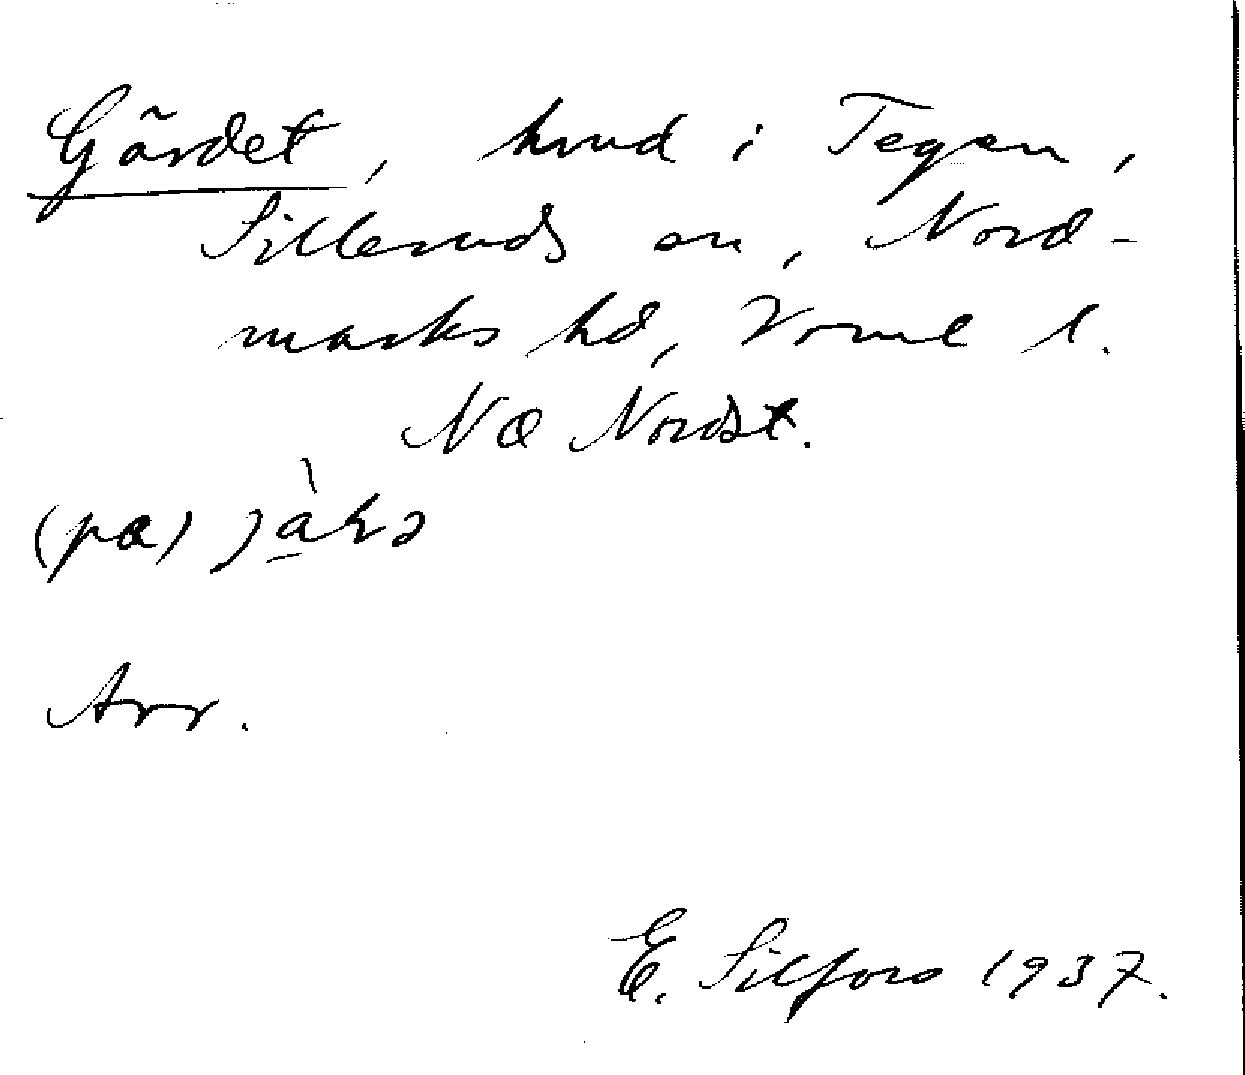 Gärdet, hmd i Tegen,
Silleruds sn, Nord-
marks hd, Vrml l.
NO Nordst.
(pa)
Arr.
E. Silfors 1937.